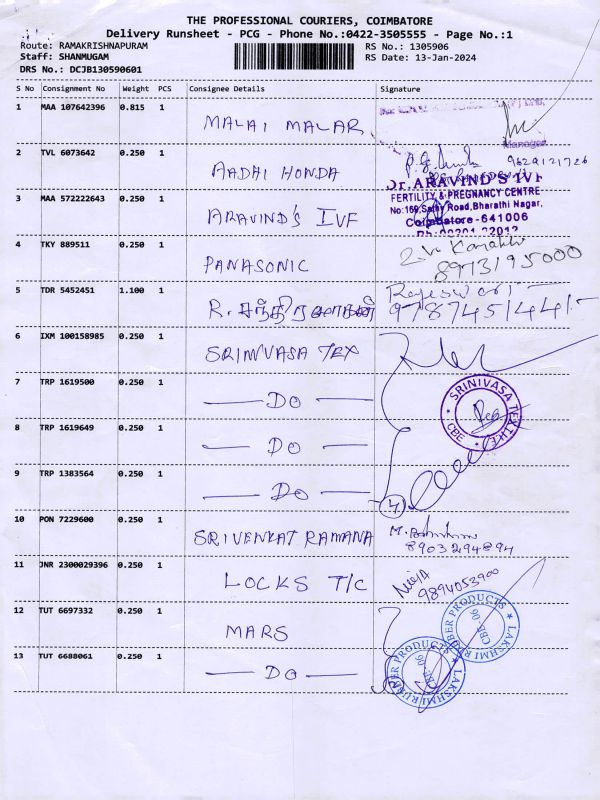 THE PROFESSIONAL COURIERS, COIMBATORE
Delivery Runsheet - PCG - Phone No.:0422-3505555 - Page No.:1
Route: RAMAKRISHNAPURAM RS No.: 1305906
Staff: SHANMUGAM RS Date: 13-Jan-2024
DRS No.: DCJB130590601
S No Consignment No Weight PCS Consignee Details Signature
1 MAA 107642396 0.815 1 MALAI MALAR
Manager
2 TVL 6073642 0.250 1 AADHI HONDA 9629121726
3 MAA 572222643 0.250 1 ARAVIND'S IVF
Dr.ARAVIND'S IVF
FERTILITY & PREGNANCY CENTRE
No:169,Sathy Road,Bharathi Nagar,
Coimbatore-641006
4 TKY 889511 0.250 1 PANASONIC
8973195000
5 TDR 5452451 1.100 1 R. சந்திரகலாகன் Rajeswari
9787451441
6 IXM 100158985 0.250 1 SRINIVASA TEX
7 TRP 1619500 0.250 1 — DO —
SRINIVASA TEXTILE
CBE
8 TRP 1619649 0.250 1 — DO —
9 TRP 1383564 0.250 1 — DO — 4
10 PON 7229600 0.250 1 SRIVENKAT RAMANA
8903294894
11 JNR 2300029396 0.250 1 LOCKS T/C
9894053900
12 TUT 6697332 0.250 1 MARS
LAKSHMI RUBBER PRODUCTS
CBE-06
13 TUT 6688061 0.250 1 — DO —
LAKSHMI RUBBER PRODUCTS
CBE-06